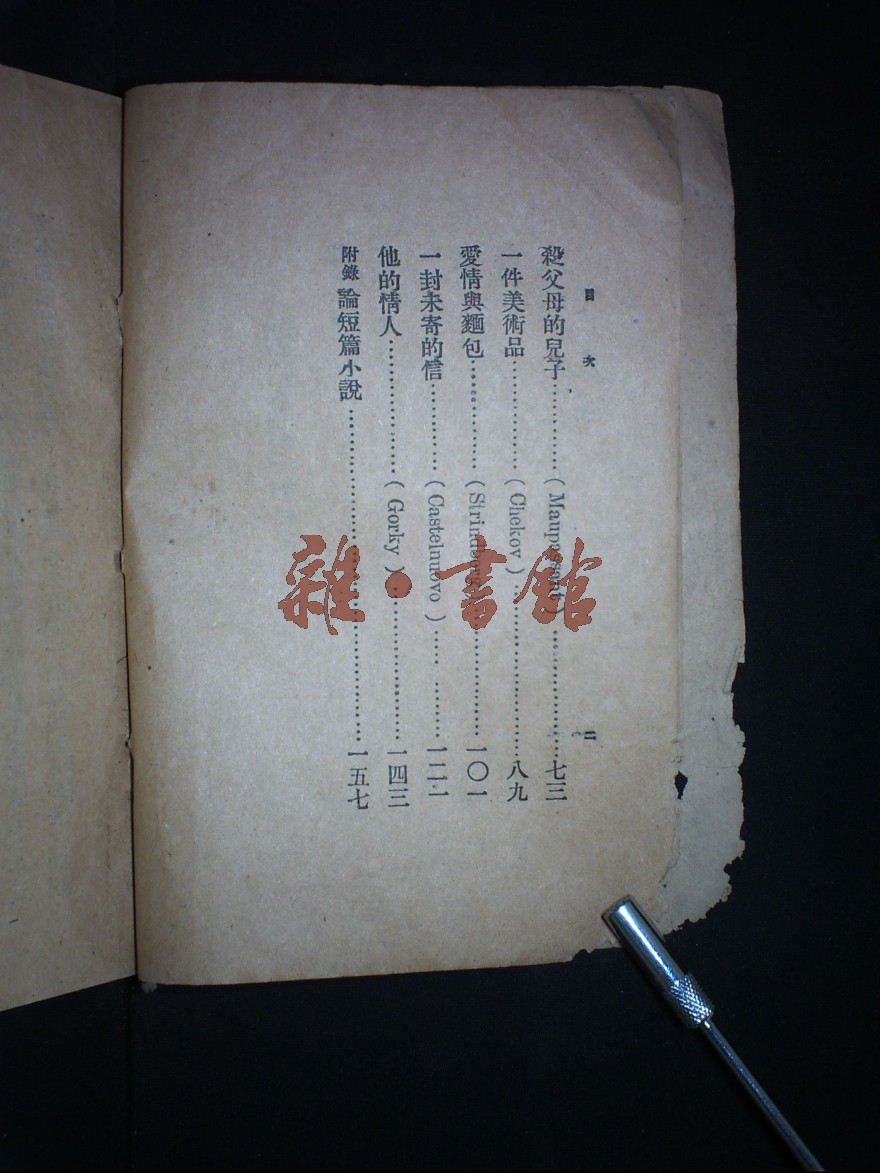 目次
二
殺父母的兒子……………(Maupassant)………………七三
一件美術品………………(Chekov)……………………八九
愛情與麵包………………(Strindberg)………………一〇一
一封未寄的信……………(Castelnuovo)…… ………一二一
他的情人…………………(Gorky)……………………一四三
附錄 論短篇小說……………………………………………一五七
雜·書館